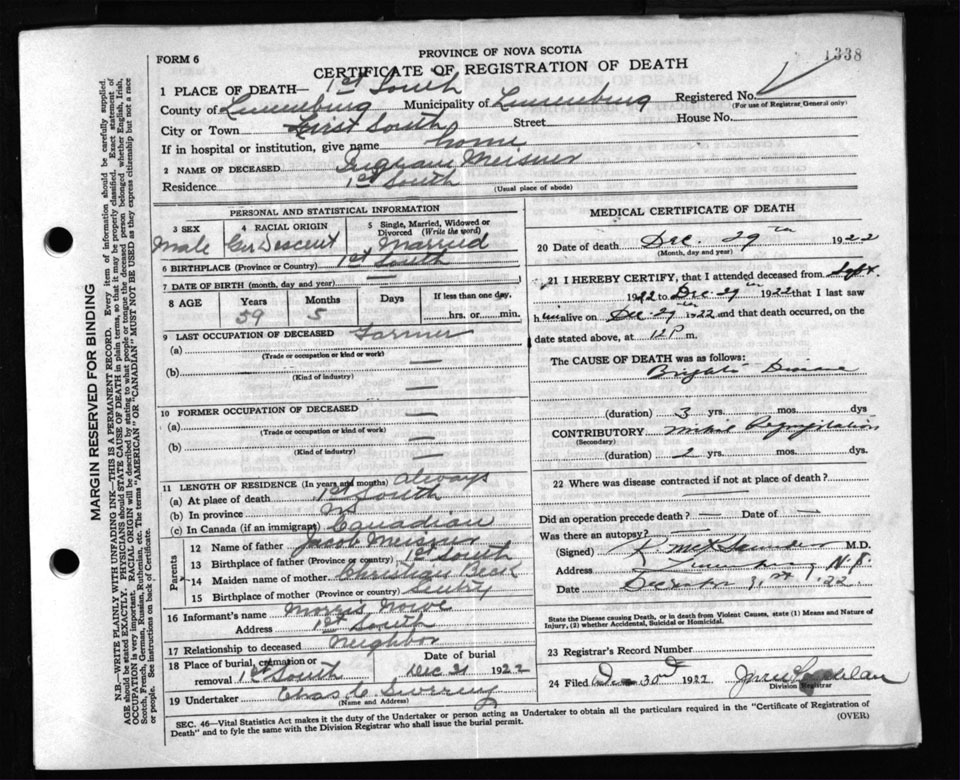 1338
PROVINCE OF NOVA SCOTIA
FORM 6
CERTIFICATE OF REGISTRATION OF DEATH
1 PLACE OF DEATH— 1st South
Registered No.
(For use of Registrar General only)
County of Lunenburg Municipality of Lunenburg
House No.
City or Town First South Street
If in hospital or institution, give name home
2 NAME OF DECEASED Ingram Meisner
Residence 1st South
(Usual place of abode)
PERSONAL AND STATISTICAL INFORMATION
3 SEX
Male
4 RACIAL ORIGIN
Ger Descent
5 Single, Married, Widowed or Divorced (Write the word)
Married
6 BIRTHPLACE (Province or Country) 1st South
7 DATE OF BIRTH (month, day and year) —
8 AGE Years Months Days If less than one day,
59 5 hrs. or min.
9 LAST OCCUPATION OF DECEASED Farmer
(a)
(Trade or occupation or kind or work)
(b) —
(Kind of industry)
—
10 FORMER OCCUPATION OF DECEASED
(a) —
(Trade or occupation or kind of work)
(b) —
(Kind of industry)
11 LENGTH OF RESIDENCE (In years and months) always
(a) At place of death 1st South
(b) In province NS
(c) In Canada (if an immigrant) Canadian
Parents
12 Name of father Jacob Meisner
13 Birthplace of father (Province or Country) 1st South
14 Maiden name of mother Christian Beck
15 Birthplace of mother (Province or Country)
16 Informant's name Morris
Address 1st South
17 Relationship to deceased Neighbor
18 Place of burial, cremation or removal 1st South
Date of burial
Dec 31 1922
19 Undertaker Chas C.
(Name and Address)
MEDICAL CERTIFICATE OF DEATH
20 Date of death Dec. 29th 1922
(Month, day and year)
21 I HEREBY CERTIFY, that I attended deceased from Sept.
1922 to Dec 29th 1922 that I last saw
him alive on Dec. 29th 1922 and that death occurred, on the
date stated above, at 12 P m.
The CAUSE OF DEATH was as follows:
Brights Disease
(duration) 3 yrs. mos. dys
CONTRIBUTORY Mitral Regurgitation
(Secondary)
(duration) 2 yrs. mos. dys.
22 Where was disease contracted if not at place of death?
—
Did an operation precede death? — Date of —
Was there an autopsy?
(Signed) M.D.
Address Lunenburg N.S.
Date 31st '22
State the Disease causing Death, or in death from Violent Causes, state (1) Means and Nature of Injury, (2) whether Accidental, Suicidal or Homicidal.
23 Registrar's Record Number
24 Filed 30th 1922
Division Registrar
SEC. 46—Vital Statistics Act makes it the duty of the Undertaker or person acting as Undertaker to obtain all the particulars required in the "Certificate of Registration of
Death" and to fyle the same with the Division Registrar who shall issue the burial permit.
(OVER)
MARGIN RESERVED FOR BINDING
N.B.—WRITE PLAINLY WITH UNFADING INK—THIS IS A PERMANENT RECORD. Every item of information should be carefully supplied.
AGE should be stated EXACTLY. PHYSICIANS should STATE CAUSE OF DEATH in plain terms, so that it may be properly classified. Exact statement of
OCCUPATION is very important. RACIAL ORIGIN will be described by stating to what people or tongue the deceased person belonged whether English, Irish,
Scotch, French, German, Russian, Ruthenian, etc. The terms "AMERICAN" or "CANADIAN" MUST NOT BE USED as they express citizenship but not a race
or people. See instructions on back of Certificate.